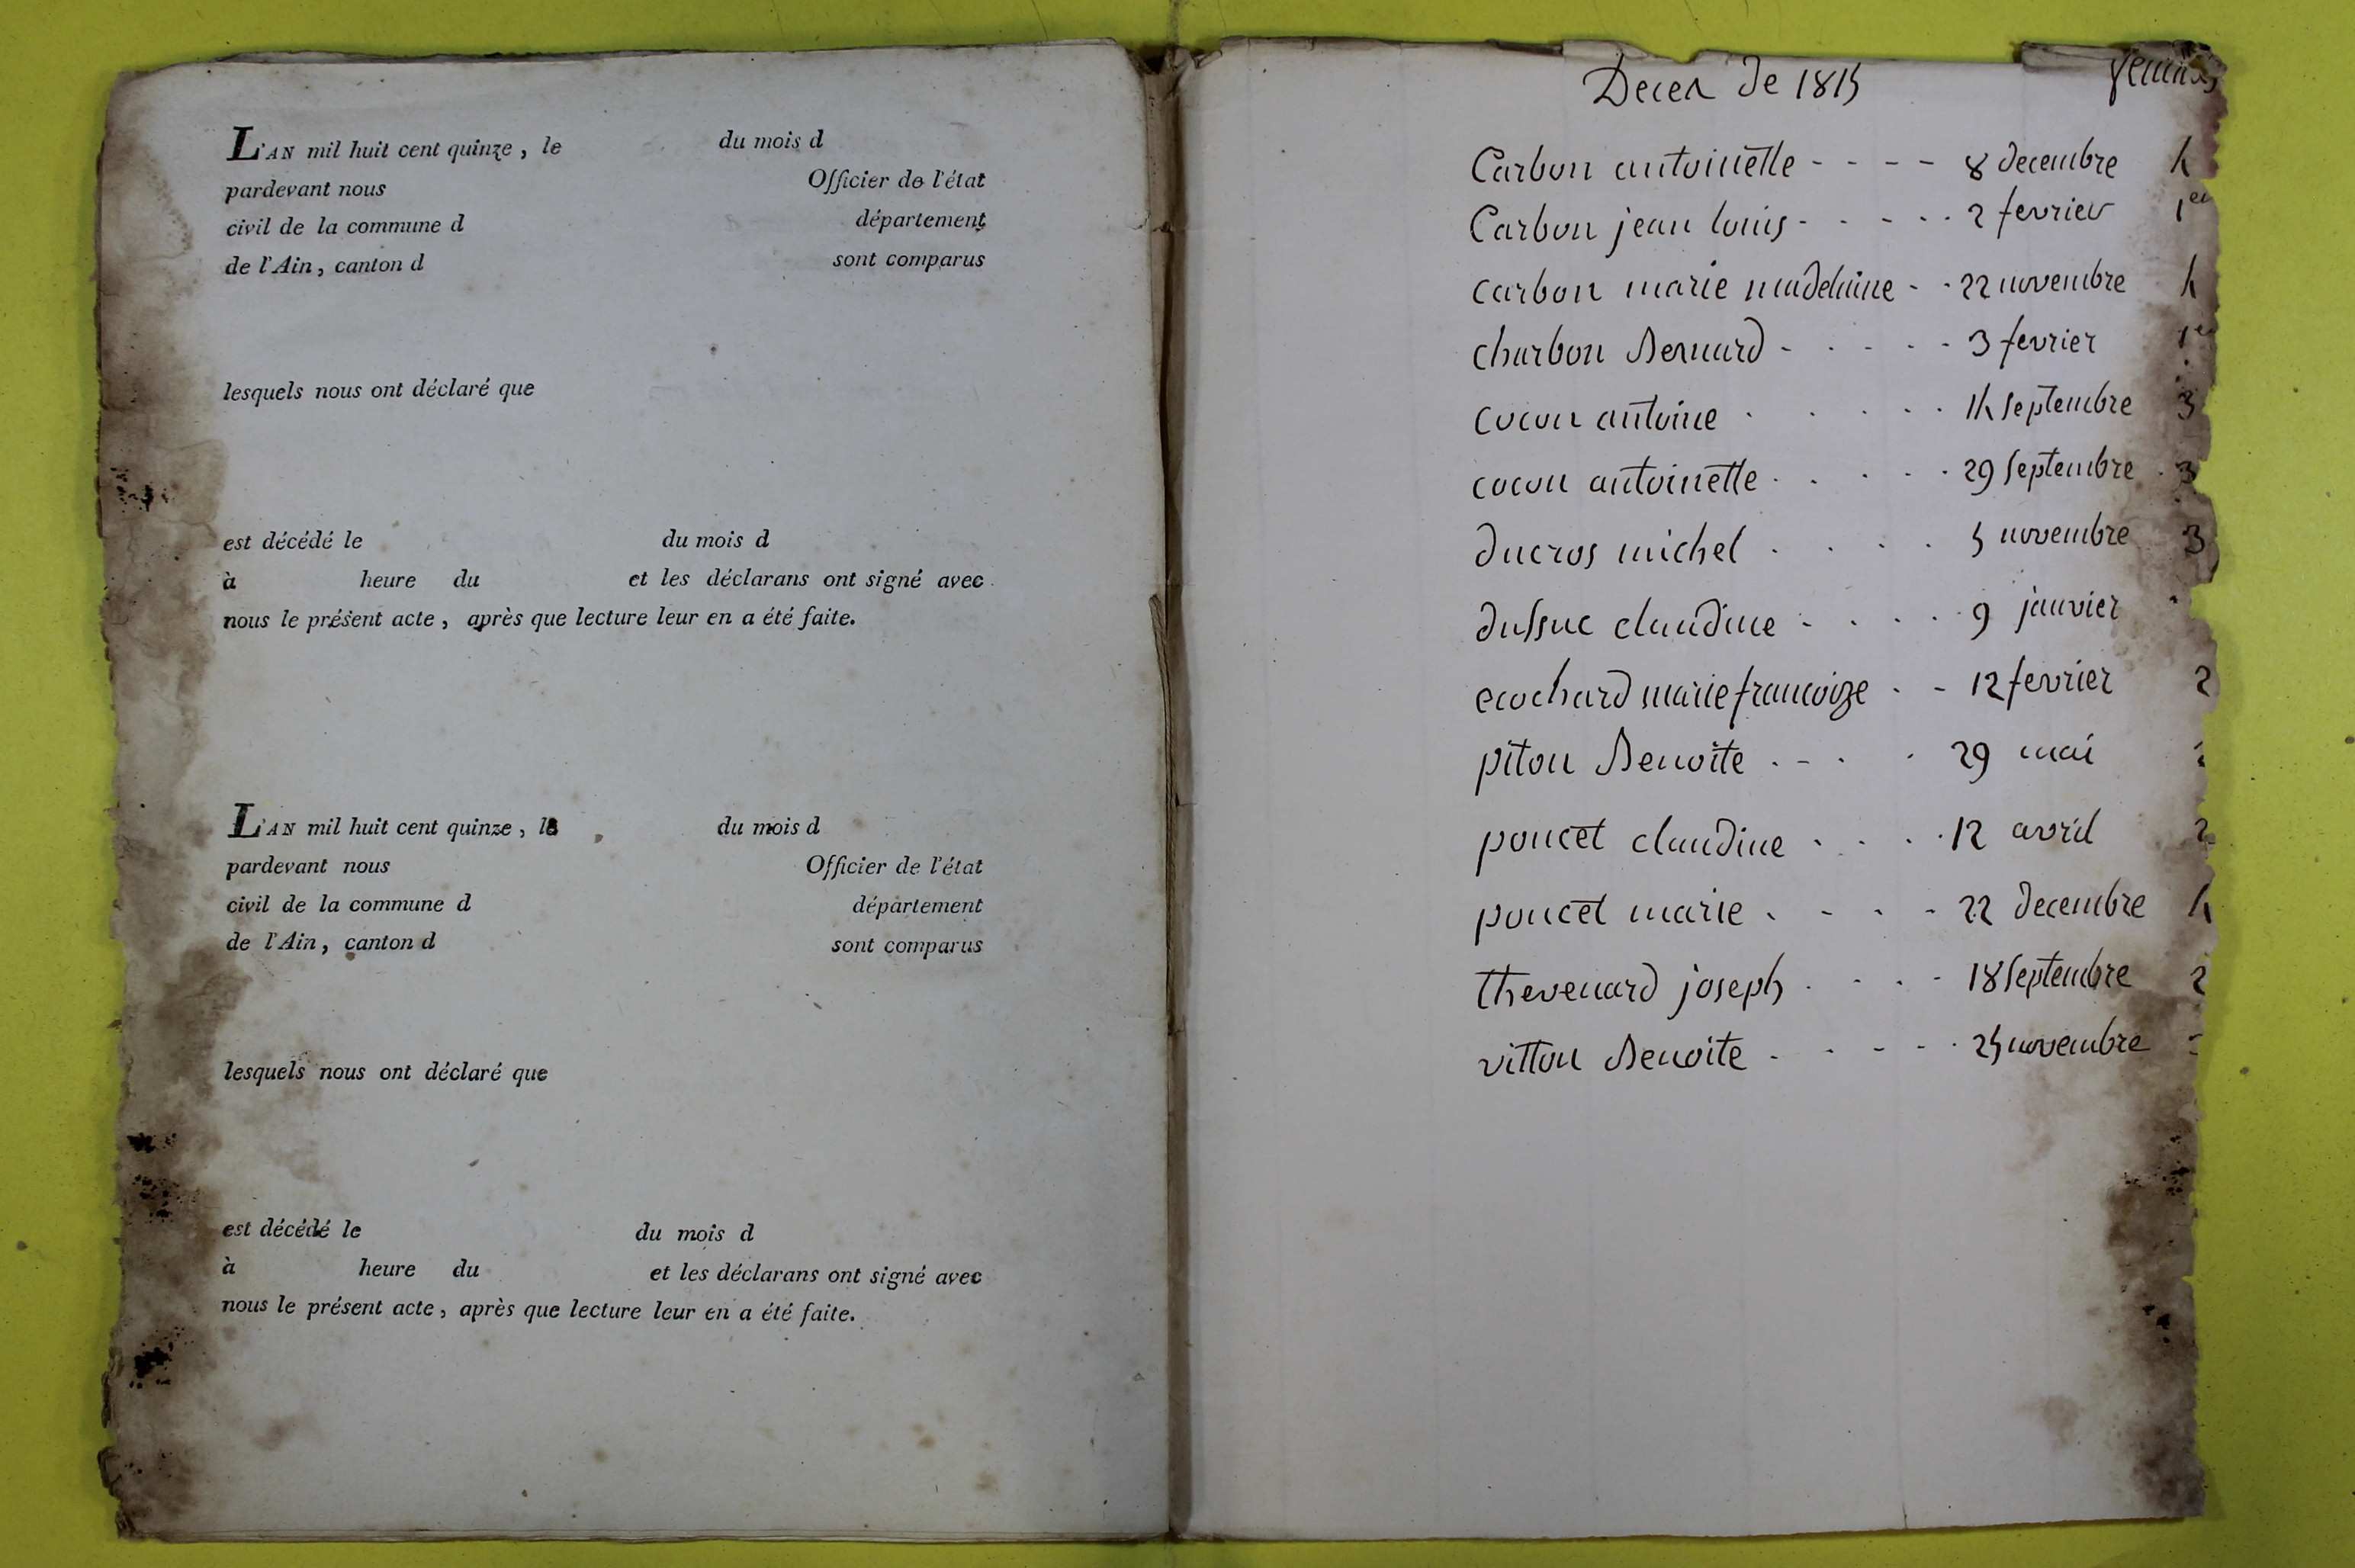 L'AN mil huit cent quinze, le du mois d
pardevant nous Officier de l'état
civil de la commune d département
de l'Ain, canton d sont comparus
lesquels nous ont déclaré que
est décédé le du mois d
à heure du et les déclarans ont signé avec
nous le présent acte, après que lecture leur en a été faite.
L'AN mil huit cent quinze, le du mois d
pardevant nous Officier de l'état
civil de la commune d département
de l'Ain, canton d sont comparus
lesquels nous ont déclaré que
est décédé le du mois d
à heure du et les déclarans ont signé avec
nous le présent acte, après que lecture leur en a été faite.
Deces de 1815
Carbon antoinette - - - - 8 decembre 4
Carbon jean louis - - - - - 2 fevrier 1er
carbon marie madelaine - - 22 novembre 4
charbon Benuard - - - - - 3 fevrier 1er
cocon antoine . . . . . 14 septembre 3
cocon antoinette . . . . . 29 septembre 3
ducros michel . . . . 5 novembre 3
dussuc claudine - . . . . 9 janvier
ecochard marie francoize . - 12 fevrier 2
piton Benoite . - . . 29 mai
poncet claudine . . . . 12 avril 2
poncet marie . - . - 22 decembre 4
thevenard joseph . - . - 18 septembre 2
vitton Benoite - - - - . 25 novembre